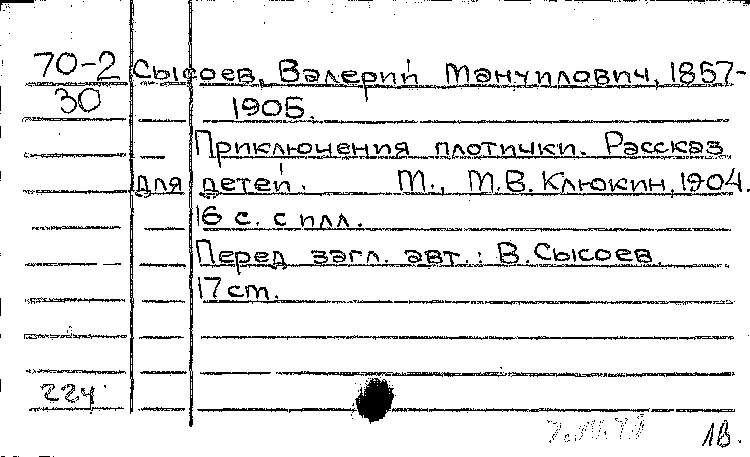 70-2 Сысоев, Валерий Мануилович, 1857-
30 1905.
Приключения плотички. Рассказ
для детей. М., М.В. Клюкин, 1904.
16 с. с илл.
Перед загл. авт.: В. Сысоев.
17 cm.
224
1В.